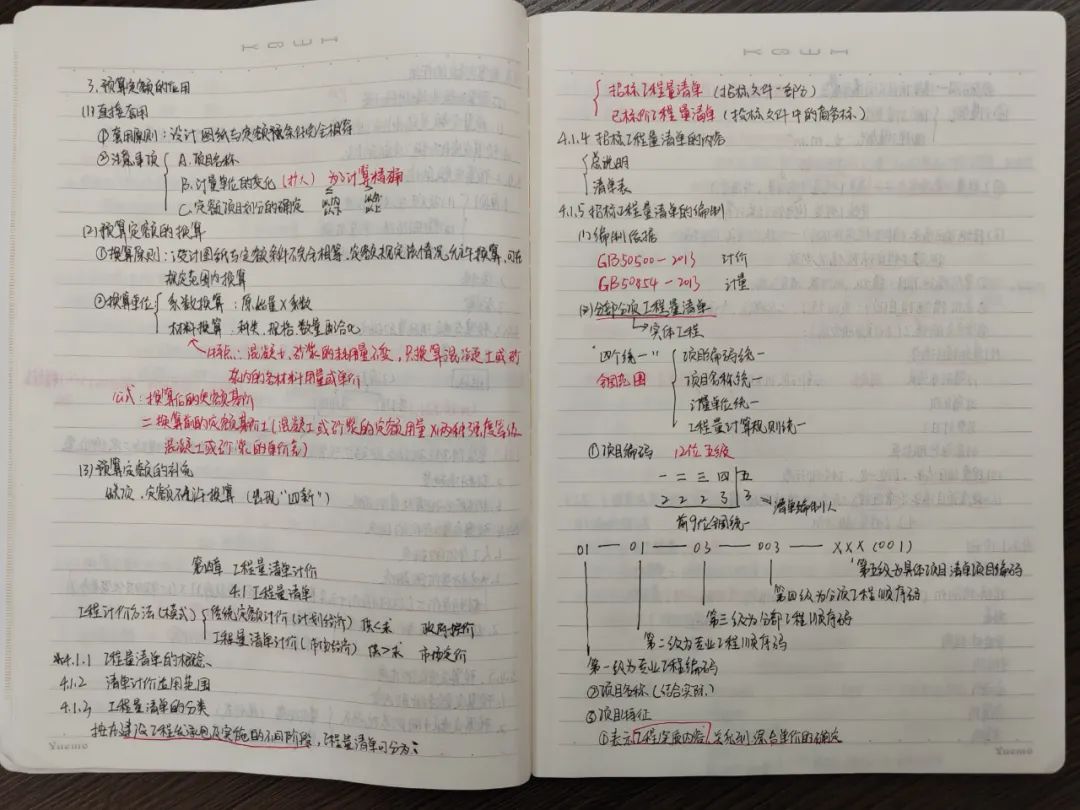 3.预算定额的应用
(1)直接套用
①套用原则:设计图纸与定额条件完全相符
②注意事项 A.项目名称
B.计量单位的变化(扩大) 为了计算精确
C.定额项目划分的确定 以内 以下 以外 以上
(2)预算定额的换算
①换算原则:设计图纸与定额条件不完全相符,定额规定该情况允许换算,可在
规定范围内换算
②换算单位 系数换算:原始量×系数
材料换算:种类、规格、数量
特点:混凝土、砂浆的耗用量不变,只换算混凝土或砂
浆内的各材料用量或单价
公式:换算后的定额基价
=换算前的定额基价±(混凝土或砂浆的定额用量×两种强度等级
混凝土或砂浆的单价差)
(3)预算定额的补充
缺项,定额不允许换算(出现"四新")
第四章 工程量清单计价
4.1 工程量清单
工程计价方法(模式) 传统定额计价(计划经济) 供<求 政府指价
工程量清单计价(市场经济) 供>求 市场定价
*4.1.1 工程量清单的概念、
4.1.2 清单计价应用范围
4.1.3 工程量清单的分类
按在建设工程发承包及实施的不同阶段,工程量清单可分为:
招标工程量清单(招标文件一部分)
已标价工程量清单(投标文件中的商务标)
4.1.4 招标工程量清单的内容
总说明
清单表
4.1.5 招标工程量清单的编制
(1)编制依据
GB50500-2013 计价
GB50854-2013 计量
(2)分部分项工程量清单
实体工程
"四个统一" 项目编码统一
全国范围 项目名称统一
计量单位统一
工程量计算规则统一
①项目编码 12位五级
一 二 三 四 五
2 2 2 3 3 清单编制人
前9位全国统一
01 — 01 — 03 — 003 — XXX(001)
第五级为具体项目清单项目编码
第四级为分项工程顺序码
第三级为分部工程顺序码
第二级为专业工程顺序码
第一级为专业工程编码
②项目名称(结合实际)
③项目特征
①表示工程实质内容,关系到综合单价的确定
Yuemo
Yuemo